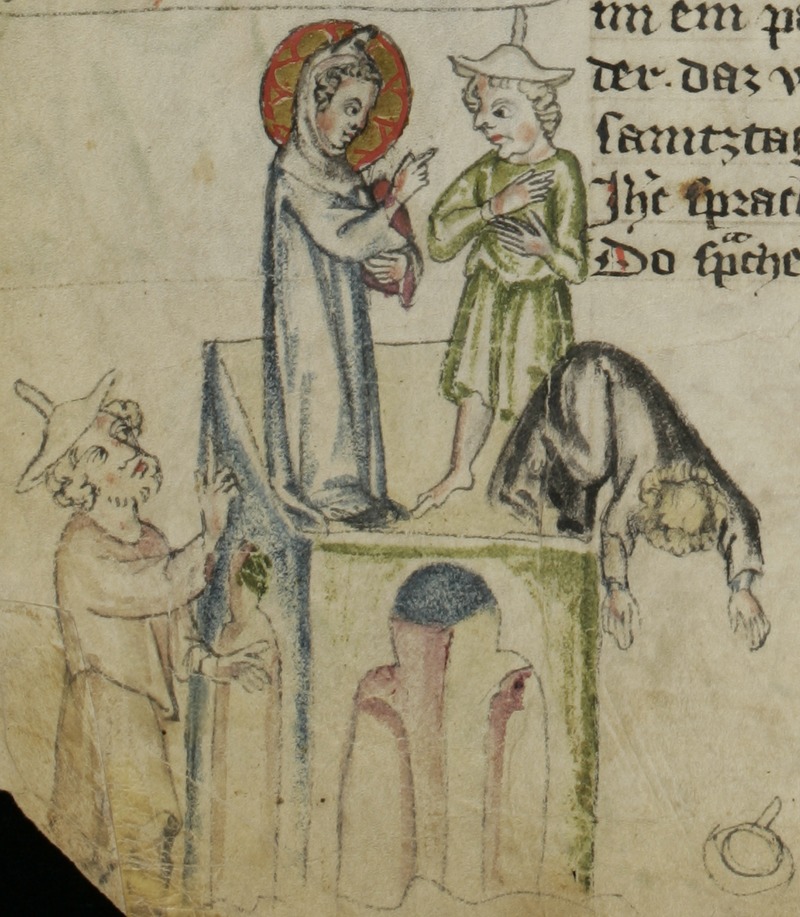 im ein pa
der. daz w
samtztag
Jhc sprach
Do spche